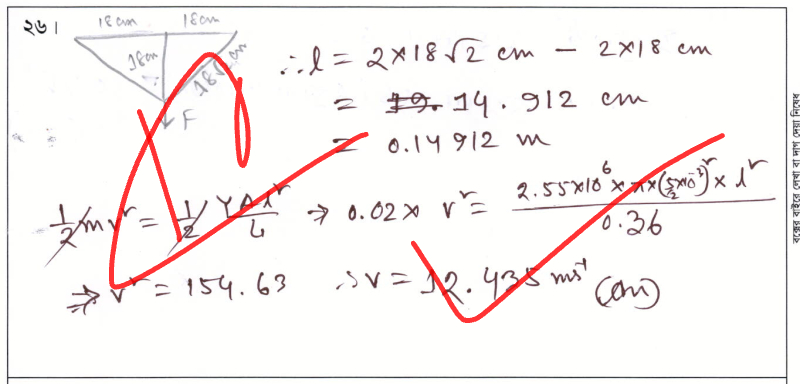 ২৬।
18cm 18cm
18cm 18√2 cm
F
∴ l = 2×18√2 cm − 2×18 cm
= 14.912 cm
= 0.14912 m
1/2 mv² = 1/2 YAl²/L ⇒ 0.02 × v² = 2.55×10⁶ × π×(5/2×10⁻³)² × l² / 0.36
⇒ v² = 154.63 ∴ v = 12.435 ms⁻¹ (Ans)
বক্সের বাইরে লেখা বা দাগ দেয়া নিষেধ